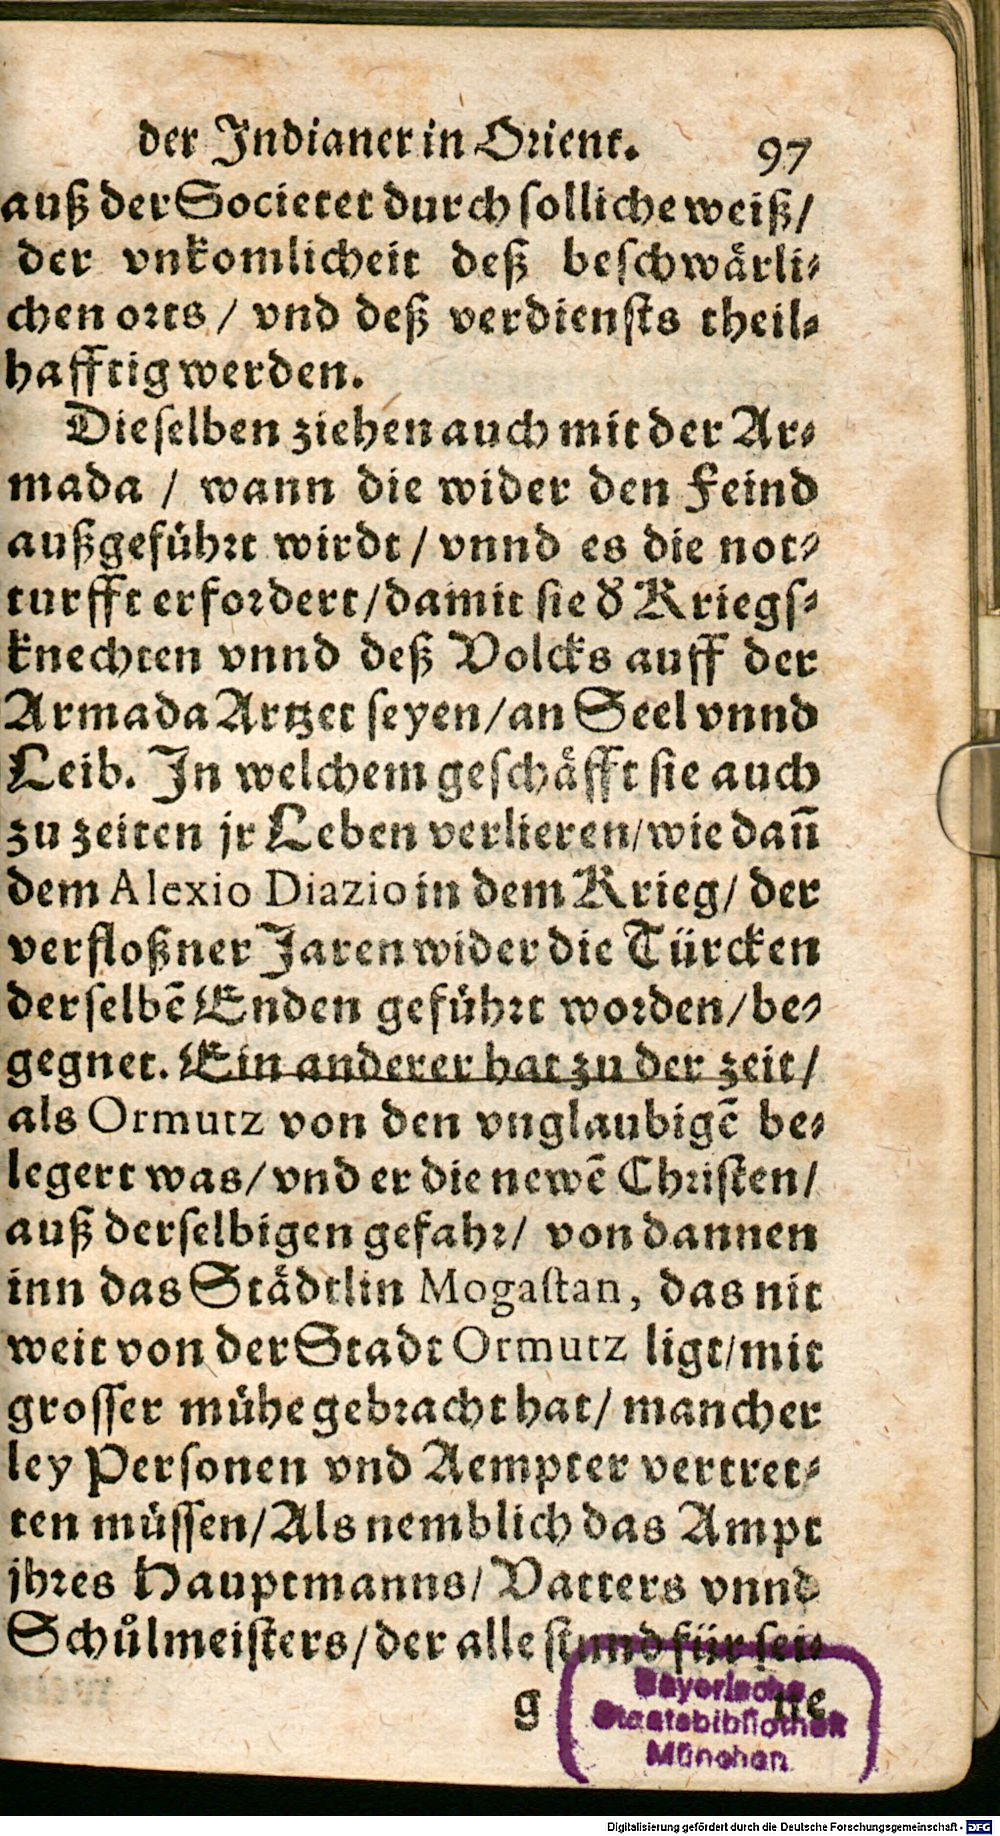 der Indianer in Orient. 97
auß der Societet durch solliche weiß/
der vnkomlicheit deß beschwärli⸗
chen orts / vnd deß verdiensts theil⸗
hafftig werden.
Dieselben ziehen auch mit der Ar⸗
mada / wann die wider den Feind
außgeführt wirdt / vnnd es die not⸗
turfft erfordert/damit sie đ Kriegs⸗
knechten vnnd deß Volcks auff der
Armada Artzet seyen/an Seel vnnd
Leib. In welchem geschäfft sie auch
zu zeiten jr Leben verlieren/wie dañ
dem Alexio Diazio in dem Krieg/ der
verfloßner Jaren wider die Türcken
derselbē Enden geführt worden/be⸗
gegnet. Ein anderer hat zu der zeit/
als Ormutz von den vnglaubigē be⸗
legert was/vnd er die newē Christen/
auß derselbigen gefahr/ von dannen
inn das Städtlin Mogastan, das nit
weit von der Stadt Ormutz ligt/mit
grosser mühe gebracht hat/ mancher
ley Personen vnd Aempter vertret⸗
ten müssen/Als nemblich das Ampt
jhres Hauptmanns/ Vatters vnnd
Schůlmeisters/der alle stund für sei⸗
g ne
Bayerische
Staatsbibliothek
München
Digitalisierung gefördert durch die Deutsche Forschungsgemeinschaft - DFG